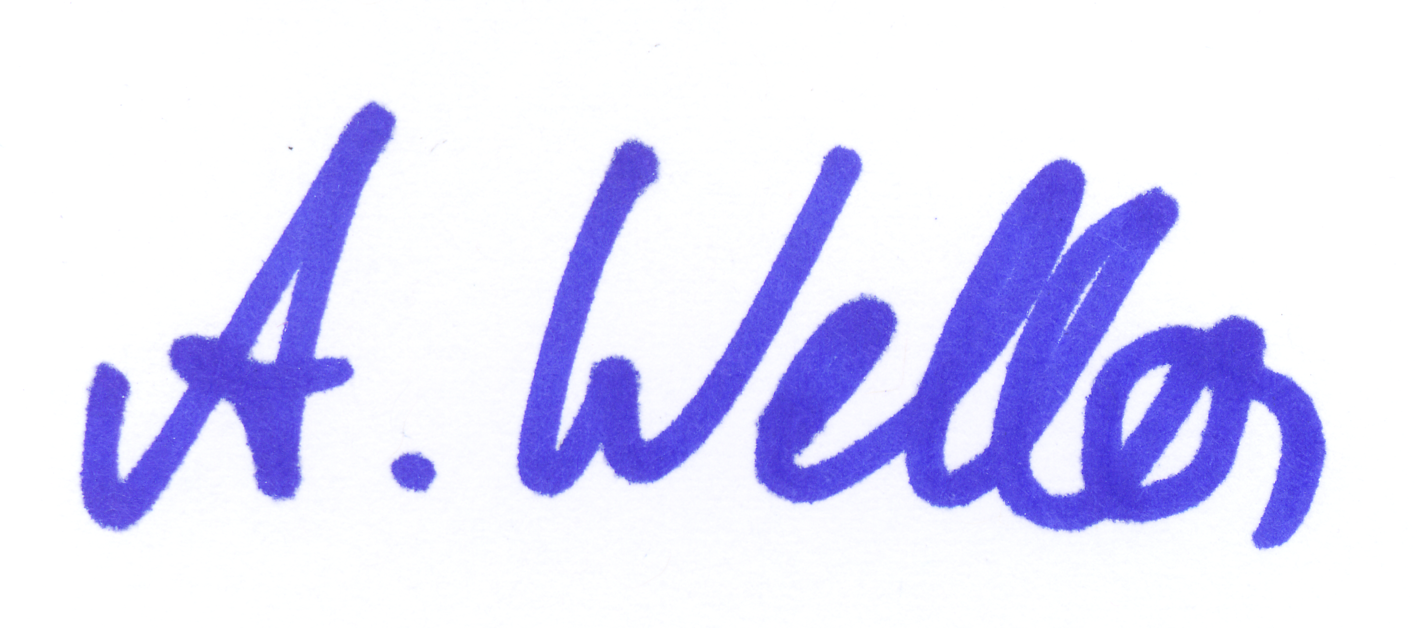 A. Weller